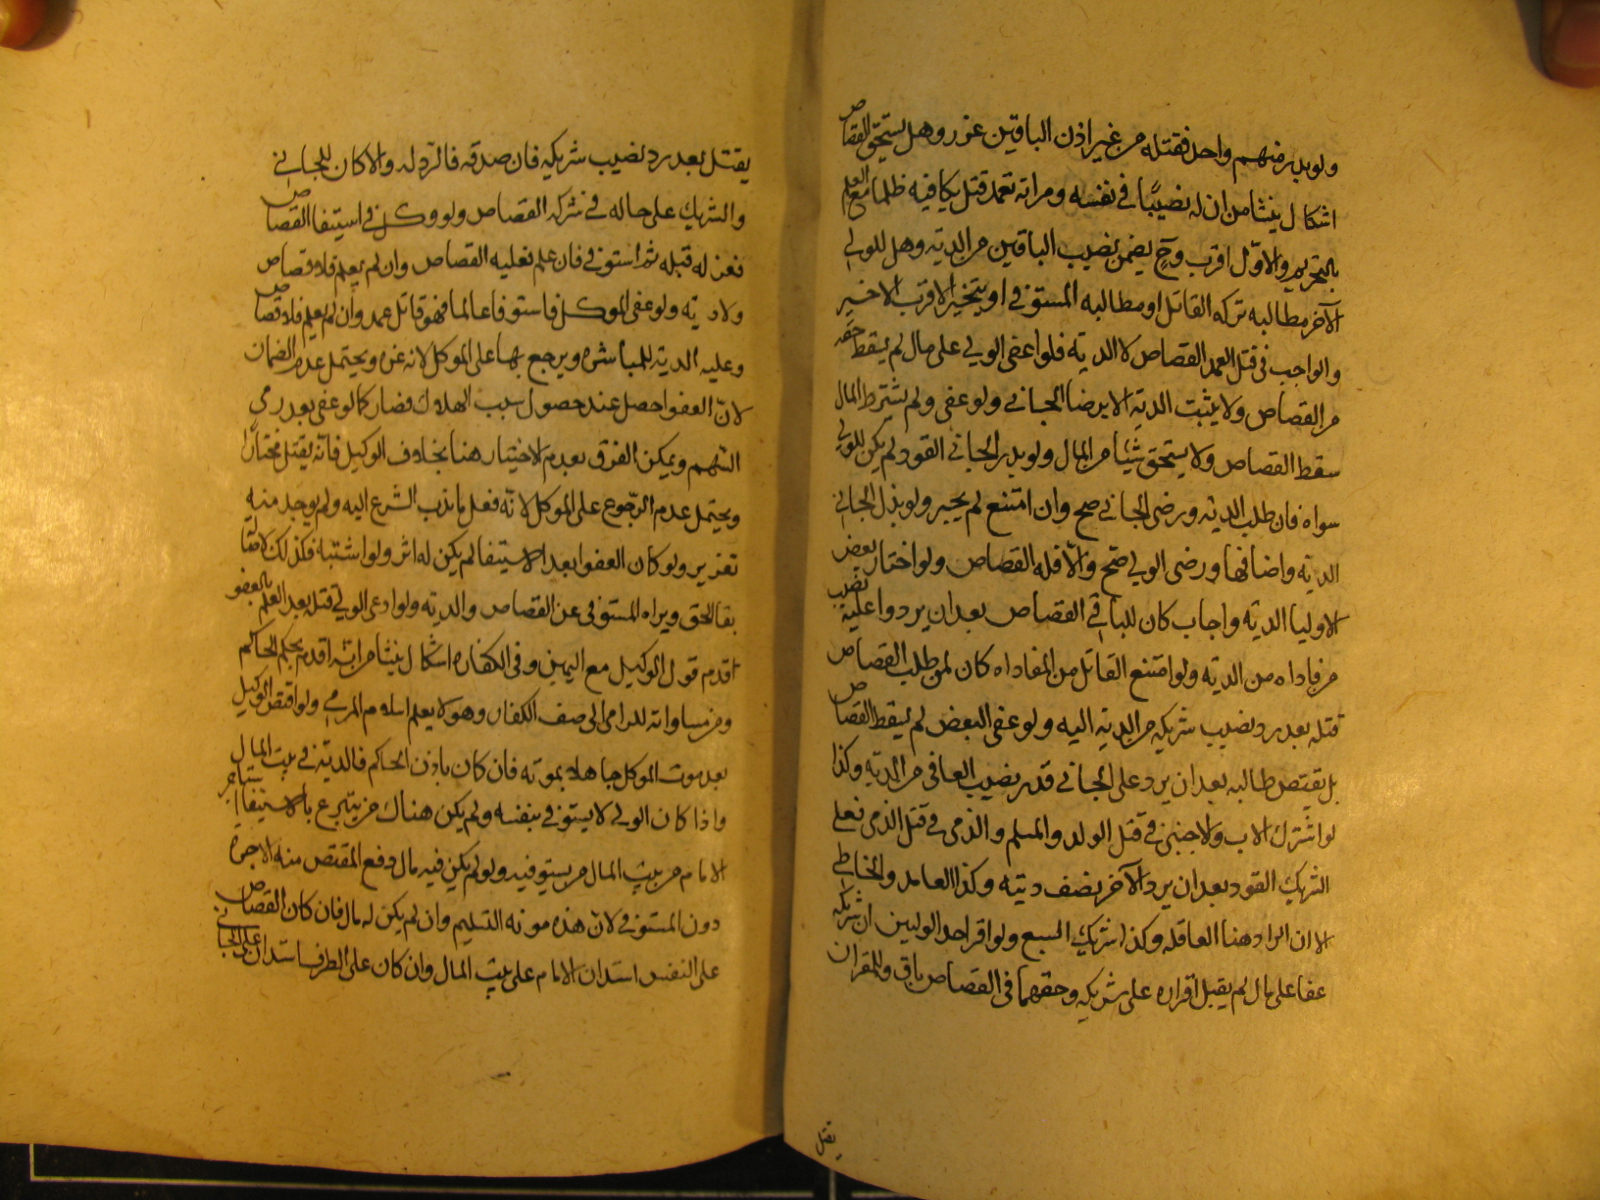 ولو بدر منهم واحد فقتله من غير اذن الباقين عزر وهل يستحق القصاص
اشكال ينشا من ان له نصيبًا في نفسه ومن انه تعمد قتل يكافيه ظلما مع العلم
بالتحريم والاوّل اقرب وح يضمن نصيب الباقين من الدية وهل للولي
الآخر مطالبه تركه القاتل او مطالبه المستوفي او يتخير الاقرب الاخير
والواجب في قتل العمد القصاص لا الدية فلو عفى الولي على مال لم يسقط حقه
من القصاص ولا يثبت الدية الا برضا الجاني ولو عفى ولم يشترط المال
سقط القصاص ولا يستحق شيئا من المال ولو بدر الجاني القود لم يكن للولي
سواه فان طلب الديه ورضى الجاني صح وان امتنع لم يجبر ولو بذل الجاني
الدية واضعافها ورضى الولي صح والّا فله القصاص ولو اختار بعض
الاوليا الدية واجاب كان للباقي القصاص بعد ان يردوا عليه نصيب
من فاداه من الدية ولو امتنع القاتل من المفاداه كان لمن طلب القصاص
قتله بعد رد نصيب شريكه من الدية اليه ولو عفى البعض لم يسقط القصاص
بل يقتص طالبه بعد ان يرد على الجاني قدر نصيب العافي من الدية وكذا
لو اشترك الاب والاجنبي في قتل الولد والمسلم والذمي في قتل الذمي فعلى
الشريك القود بعد ان يرد الآخر نصف ديته وكذا العامد والخاطي
الا ان الراد هنا العاقله وكذا شريك السبع ولو اقر احد الوليين ان شريكه
عفا على مال لم يقبل اقراره على شريكه وحقهما في القصاص باق وللمقر ان
يقتل
يقتل بعد رد نصيب شريكه فان صدقه فالرد له والا كان للجاني
والشريك على حاله في شركه القصاص ولو وكل في استيفا القصاص
فعزله قبله ثم استوفى فان علم فعليه القصاص وان لم يعلم فلا قصاص
ولا دية ولو عفى الموكل فاستوفا عالما فهو قاتل عمد وان لم يعلم فلا قصاص
وعليه الدية للمباشره ويرجع بها على الموكل لانه غره ويحتمل عدم الضمان
لانّ العفو احصل عند حصول سبب الهلاك فصار كما لو عفى بعد رمي
السهم ويمكن الفرق بعدم الاختيار هنا بخلاف الوكيل فانه يقتل مختارًا
ويحتمل عدم الرّجوع على الموكل لانّه فعل ما ندب الشرع اليه ولم يوجد منه
تغرير ولو كان العفو بعد الاستيفا لم يكن له اثر ولو اشتبه فكذلك لاصالة
بقا الحق وبراه المستوفى عن القصاص والدية ولو ادعى الولي قتله بعد العلم بالعفو
قدم قول الوكيل مع اليمين وفي الكفاره اشكال ينشا من انه اقدم بحكم الحاكم
ومن مساواته للرامي الى صف الكفار وهو لا يعلم اسلام المرمي ولو اقتص الوكيل
بعد موت الموكل جاهلا بموته فان كان باذن الحاكم فالدية في بيت المال
واذا كان الولي لا يستوفي بنفسه ولم يكن هناك من يتبرع بالاستيفا استاجر
الامام من بيت المال من يستوفيه ولو لم يكن فيه مال دفع المقتص منه الاجرة
دون المستوفي لانّ هذه مونه التسليم وان لم يكن له مال فان كان القصاص
على النفس استدان الامام على بيت المال وان كان على الطرف استدان على الجاني